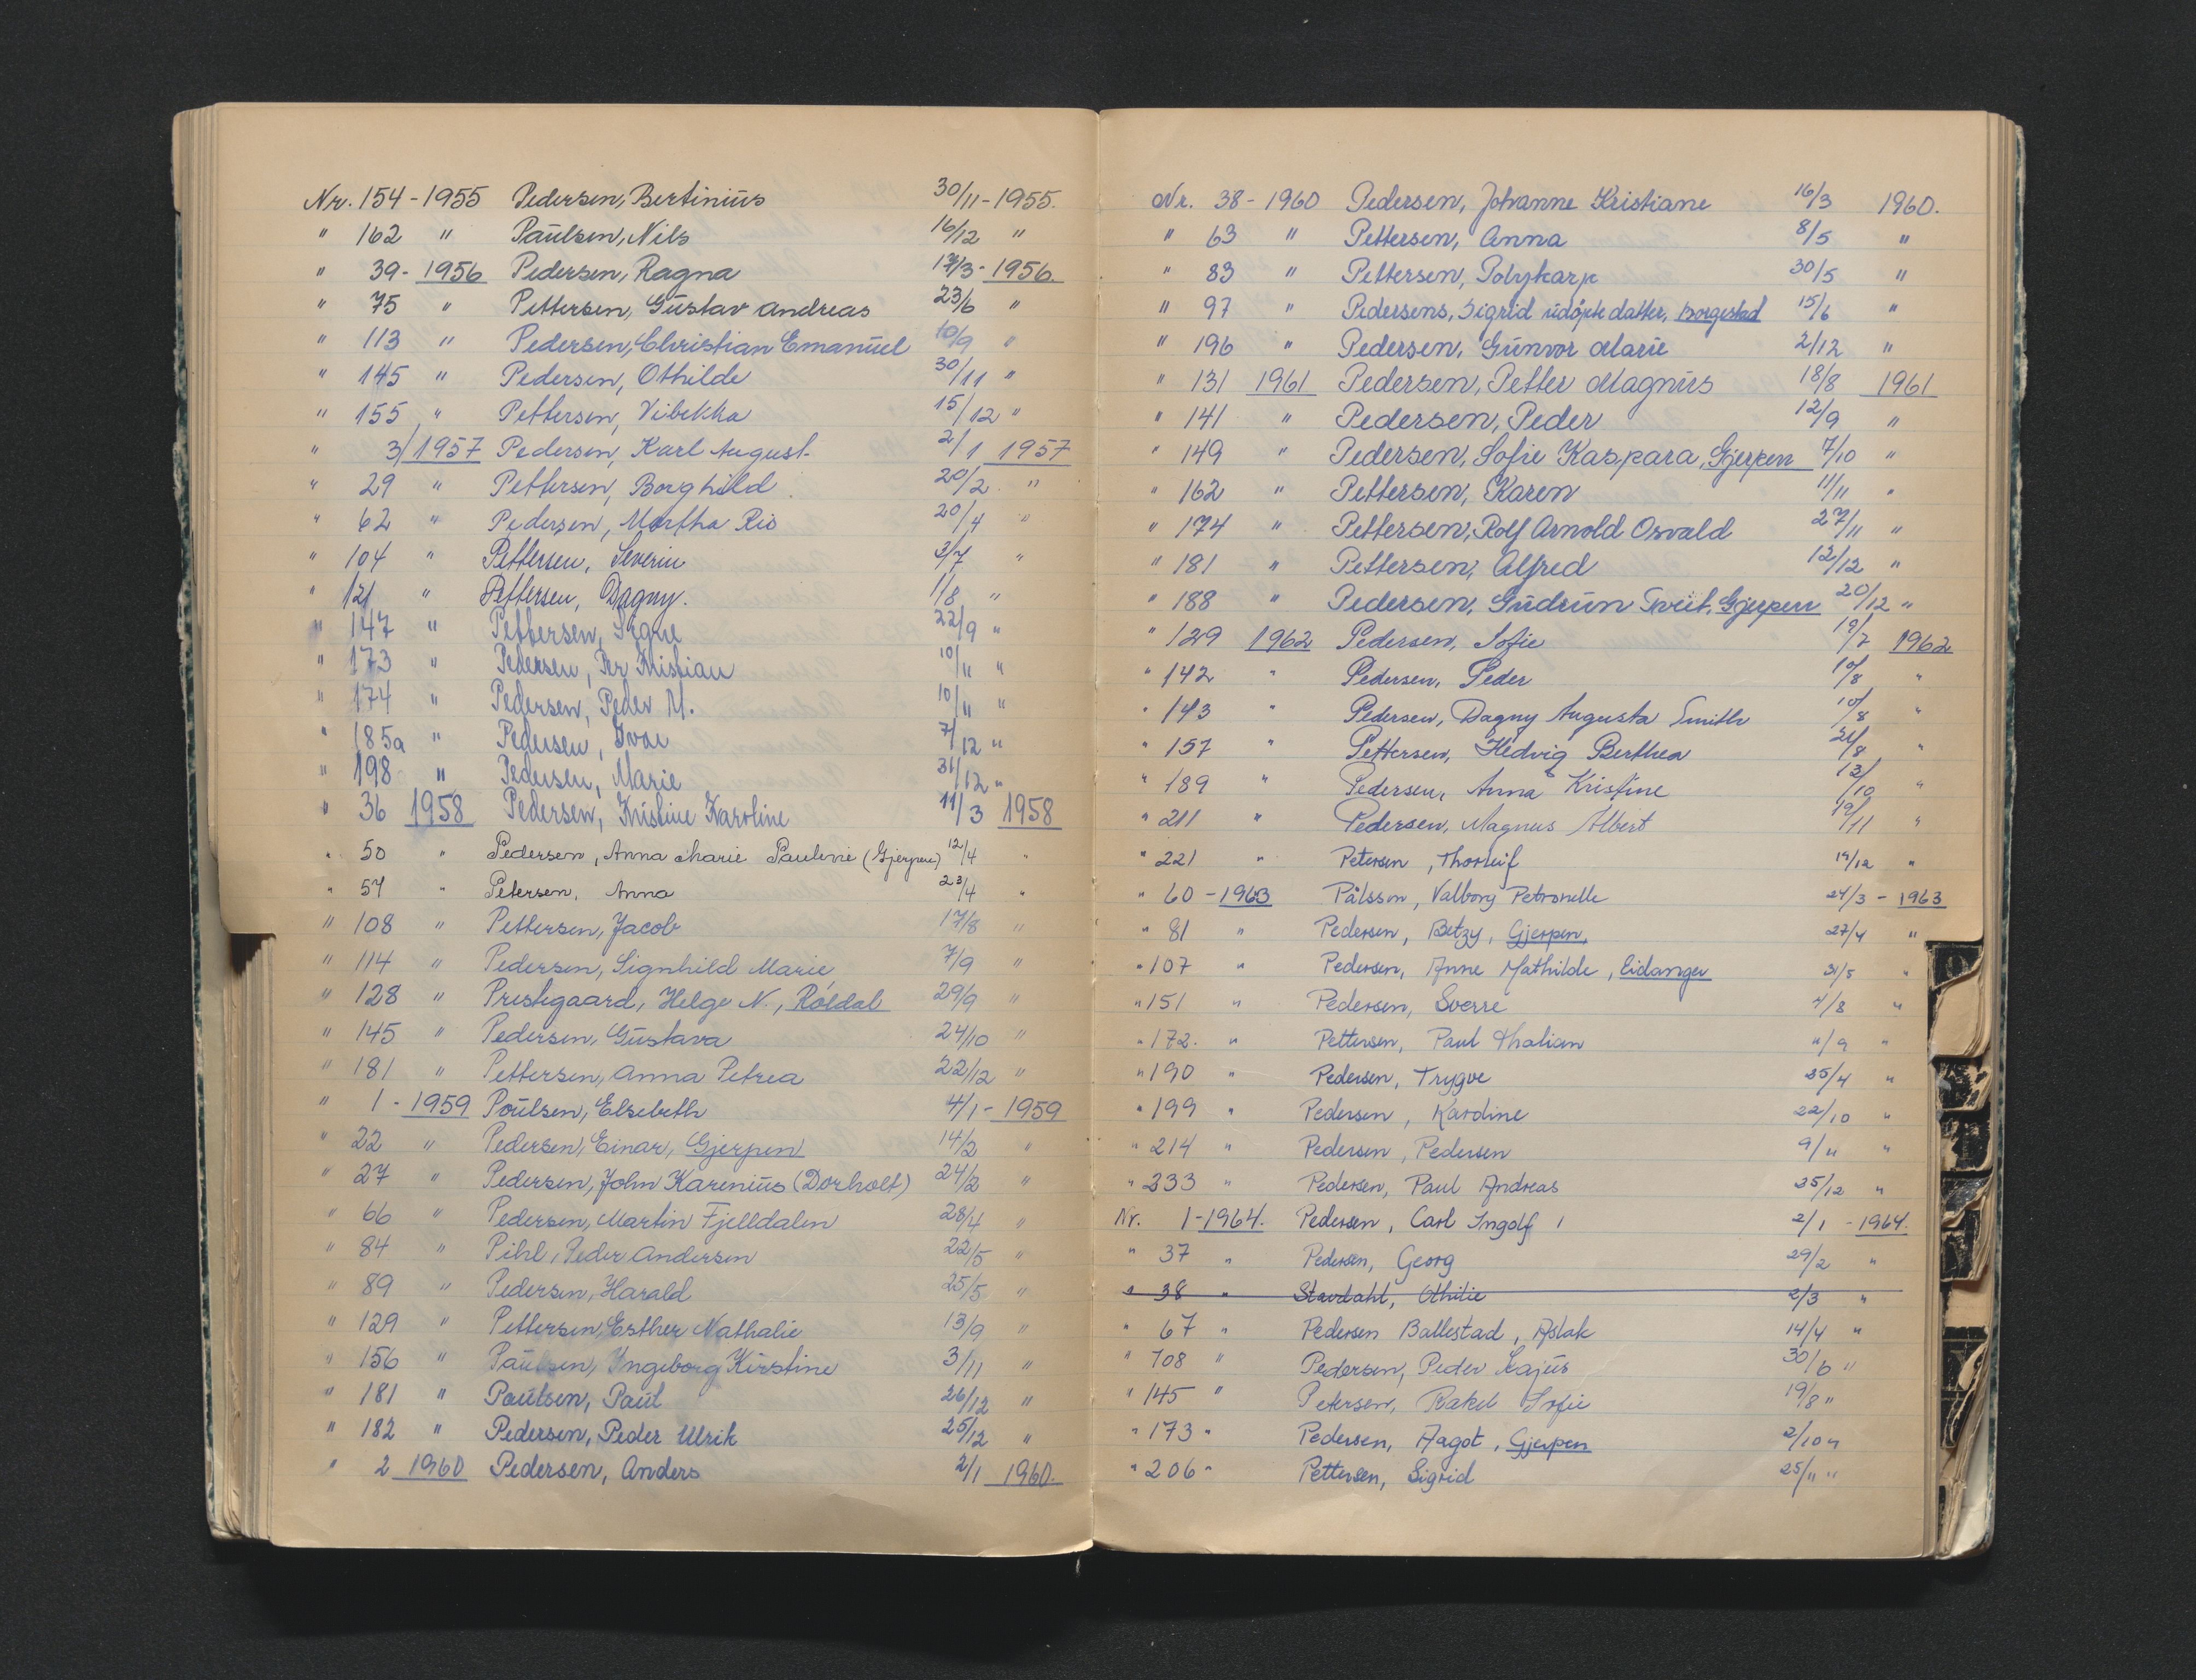 Nr. 154 - 1955 Pedersen, Bertinius 30/11 - 1955.
" 162 " Paulsen, Nils 16/12 "
" 39 - 1956 Pedersen, Ragna 17/3 - 1956.
" 75 " Pettersen, Gustav Andreas 23/6 "
" 113 " Pedersen, Christian Emanuel 10/9 "
" 145 " Pedersen, Othilde 30/11 "
" 155 " Pettersen, Vibekka 15/12 "
" 3/1957 Pedersen, Karl August 2/1 1957
" 29 " Pettersen, Borghild 20/2 "
" 62 " Pedersen, Martha Rio 20/4 "
" 104 " Pettersen, Severin 3/7 "
" 121 " Pettersen, Dagny. 11/8 "
" 147 " Pettersen, Signe 22/9 "
" 173 " Pedersen, Per Kristian 10/11 "
" 174 " Pedersen, Peder M. 10/11 "
" 185a " Pedersen, Ivar 7/12 "
" 198 " Pedersen, Marie 31/12 "
" 36 1958 Pedersen, Kristine Karoline 11/3 1958
" 50 " Pedersen, Anna Marie Pauline (Gjerpen) 12/4 "
" 57 " Petersen, Anna 23/4 "
" 108 " Pettersen, Jacob 17/8 "
" 114 " Pedersen, Signhild Marie 7/9 "
" 128 " Prestegaard, Helge N., Röldal 29/9 "
" 145 " Pedersen, Gustava 24/10 "
" 181 " Pettersen, Anna Petrea 22/12 "
" 1 - 1959 Poulsen, Elsebeth 4/1 - 1959
" 22 " Pedersen, Einar, Gjerpen 14/2 "
" 27 " Pedersen, John Karenius (Dorholt) 24/2 "
" 66 " Pedersen, Martin Fjelldalen 28/4 "
" 84 " Pihl, Peder Andersen 22/5 "
" 89 " Pedersen, Harald 25/5 "
" 129 " Pettersen, Esther Nathalie 13/9 "
" 156 " Paulsen, Ingeborg Kirstine 3/11 "
" 181 " Poulsen, Paul 26/12 "
" 182 " Pedersen, Peder Ulrik 25/12 "
" 2 1960 Pedersen, Anders 2/1 1960.
Nr. 38 - 1960 Pedersen, Johanne Kristiane 16/3 1960.
" 63 " Pettersen, Anna 8/5 "
" 83 " Pettersen, Polykarp 30/5 "
" 97 " Pedersens, Sigrid udöpte datter, Borgestad 15/6 "
" 196 " Pedersen, Gunvor Marie 2/12 "
" 131 1961 Pedersen, Petter Magnus 18/8 1961
" 141 " Pedersen, Peder 12/9 "
" 149 " Pedersen, Sofie Kaspara, Gjerpen 7/10 "
" 162 " Pettersen, Karen 11/11 "
" 174 " Pettersen, Rolf Arnold Osvald 27/11 "
" 181 " Pettersen, Alfred 12/12 "
" 188 " Pedersen, Gudrun Tveit, Gjerpen 20/12 "
" 129 1962 Pedersen, Sofie 19/7 1962
" 142 " Pedersen, Peder 10/8 "
" 143 " Pedersen, Dagny Augusta Smith 10/8 "
" 157 " Pettersen, Hedvig Berthea 21/8 "
" 189 " Pedersen, Anna Kristine 13/10 "
" 211 " Pedersen, Magnus Albert 19/11 "
" 221 " Petersen, Thorleif 14/12 "
" 60 - 1963 Pålsson, Valborg Petronelle 24/3 - 1963
" 81 " Pedersen, Betzy, Gjerpen, 27/4 "
" 107 " Pedersen, Anne Mathilde, Eidanger 31/5 "
" 151 " Pedersen, Sverre 4/8 "
" 172. " Pettersen, Paul Thalian 11/9 "
" 190 " Pedersen, Trygve 25/4 "
" 199 " Pedersen, Karoline 22/10 "
" 214 " Pedersen, Pedersen 9/11 "
" 233 " Pedersen, Paul Andreas 25/12 "
Nr. 1 - 1964. Pedersen, Carl Ingolf 2/1 - 1964.
" 37 " Pedersen, Georg 29/2 "
" 38 " Stavdahl, Othilie 2/3 "
" 67 " Pedersen Ballestad, Aslak 14/4 "
" 108 " Pedersen, Peder Kajus 30/6 "
" 145 " Petersen, Rakel Sofie 19/8 "
" 173 " Pedersen, Aagot, Gjerpen 2/10 "
" 206 " Pettersen, Sigrid 25/11 "